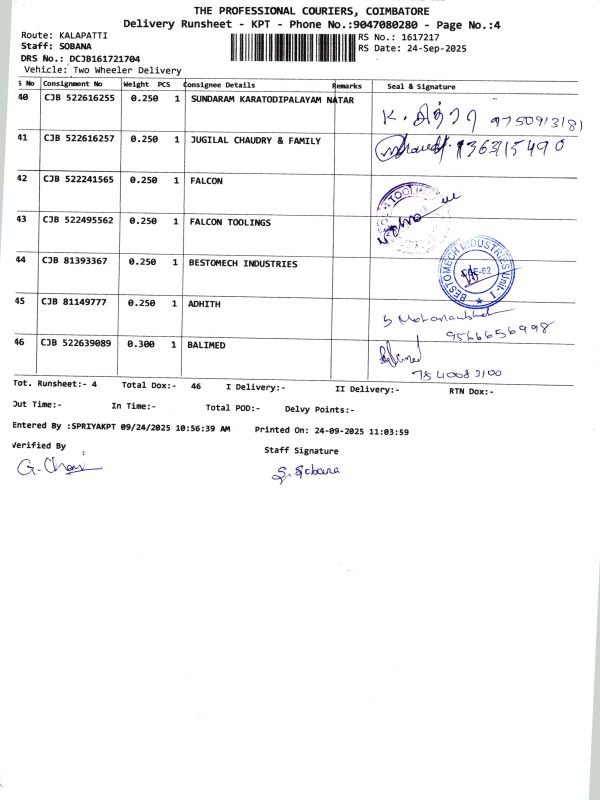 THE PROFESSIONAL COURIERS, COIMBATORE
Delivery Runsheet - KPT - Phone No.:9047080280 - Page No.:4
Route: KALAPATTI
RS No.: 1617217
Staff: SOBANA
RS Date: 24-Sep-2025
DRS No.: DCJB161721704
Vehicle: Two Wheeler Delivery
S No Consignment No Weight PCS Consignee Details Remarks Seal & Signature
40 CJB 522616255 0.250 1 SUNDARAM KARATODIPALAYAM NATAR 9750913181
41 CJB 522616257 0.250 1 JUGILAL CHAUDRY & FAMILY
42 CJB 522241565 0.250 1 FALCON
43 CJB 522495562 0.250 1 FALCON TOOLINGS
44 CJB 81393367 0.250 1 BESTOMECH INDUSTRIES BESTOMECH INDUSTRIES
45 CJB 81149777 0.250 1 ADHITH
9566656998
46 CJB 522639089 0.300 1 BALIMED
Tot. Runsheet:- 4 Total Dox:- 46 I Delivery:- II Delivery:- RTN Dox:-
Out Time:- In Time:- Total POD:- Delvy Points:-
Entered By :SPRIYAKPT 09/24/2025 10:56:39 AM Printed On: 24-09-2025 11:03:59
Verified By Staff Signature
S. Sobana